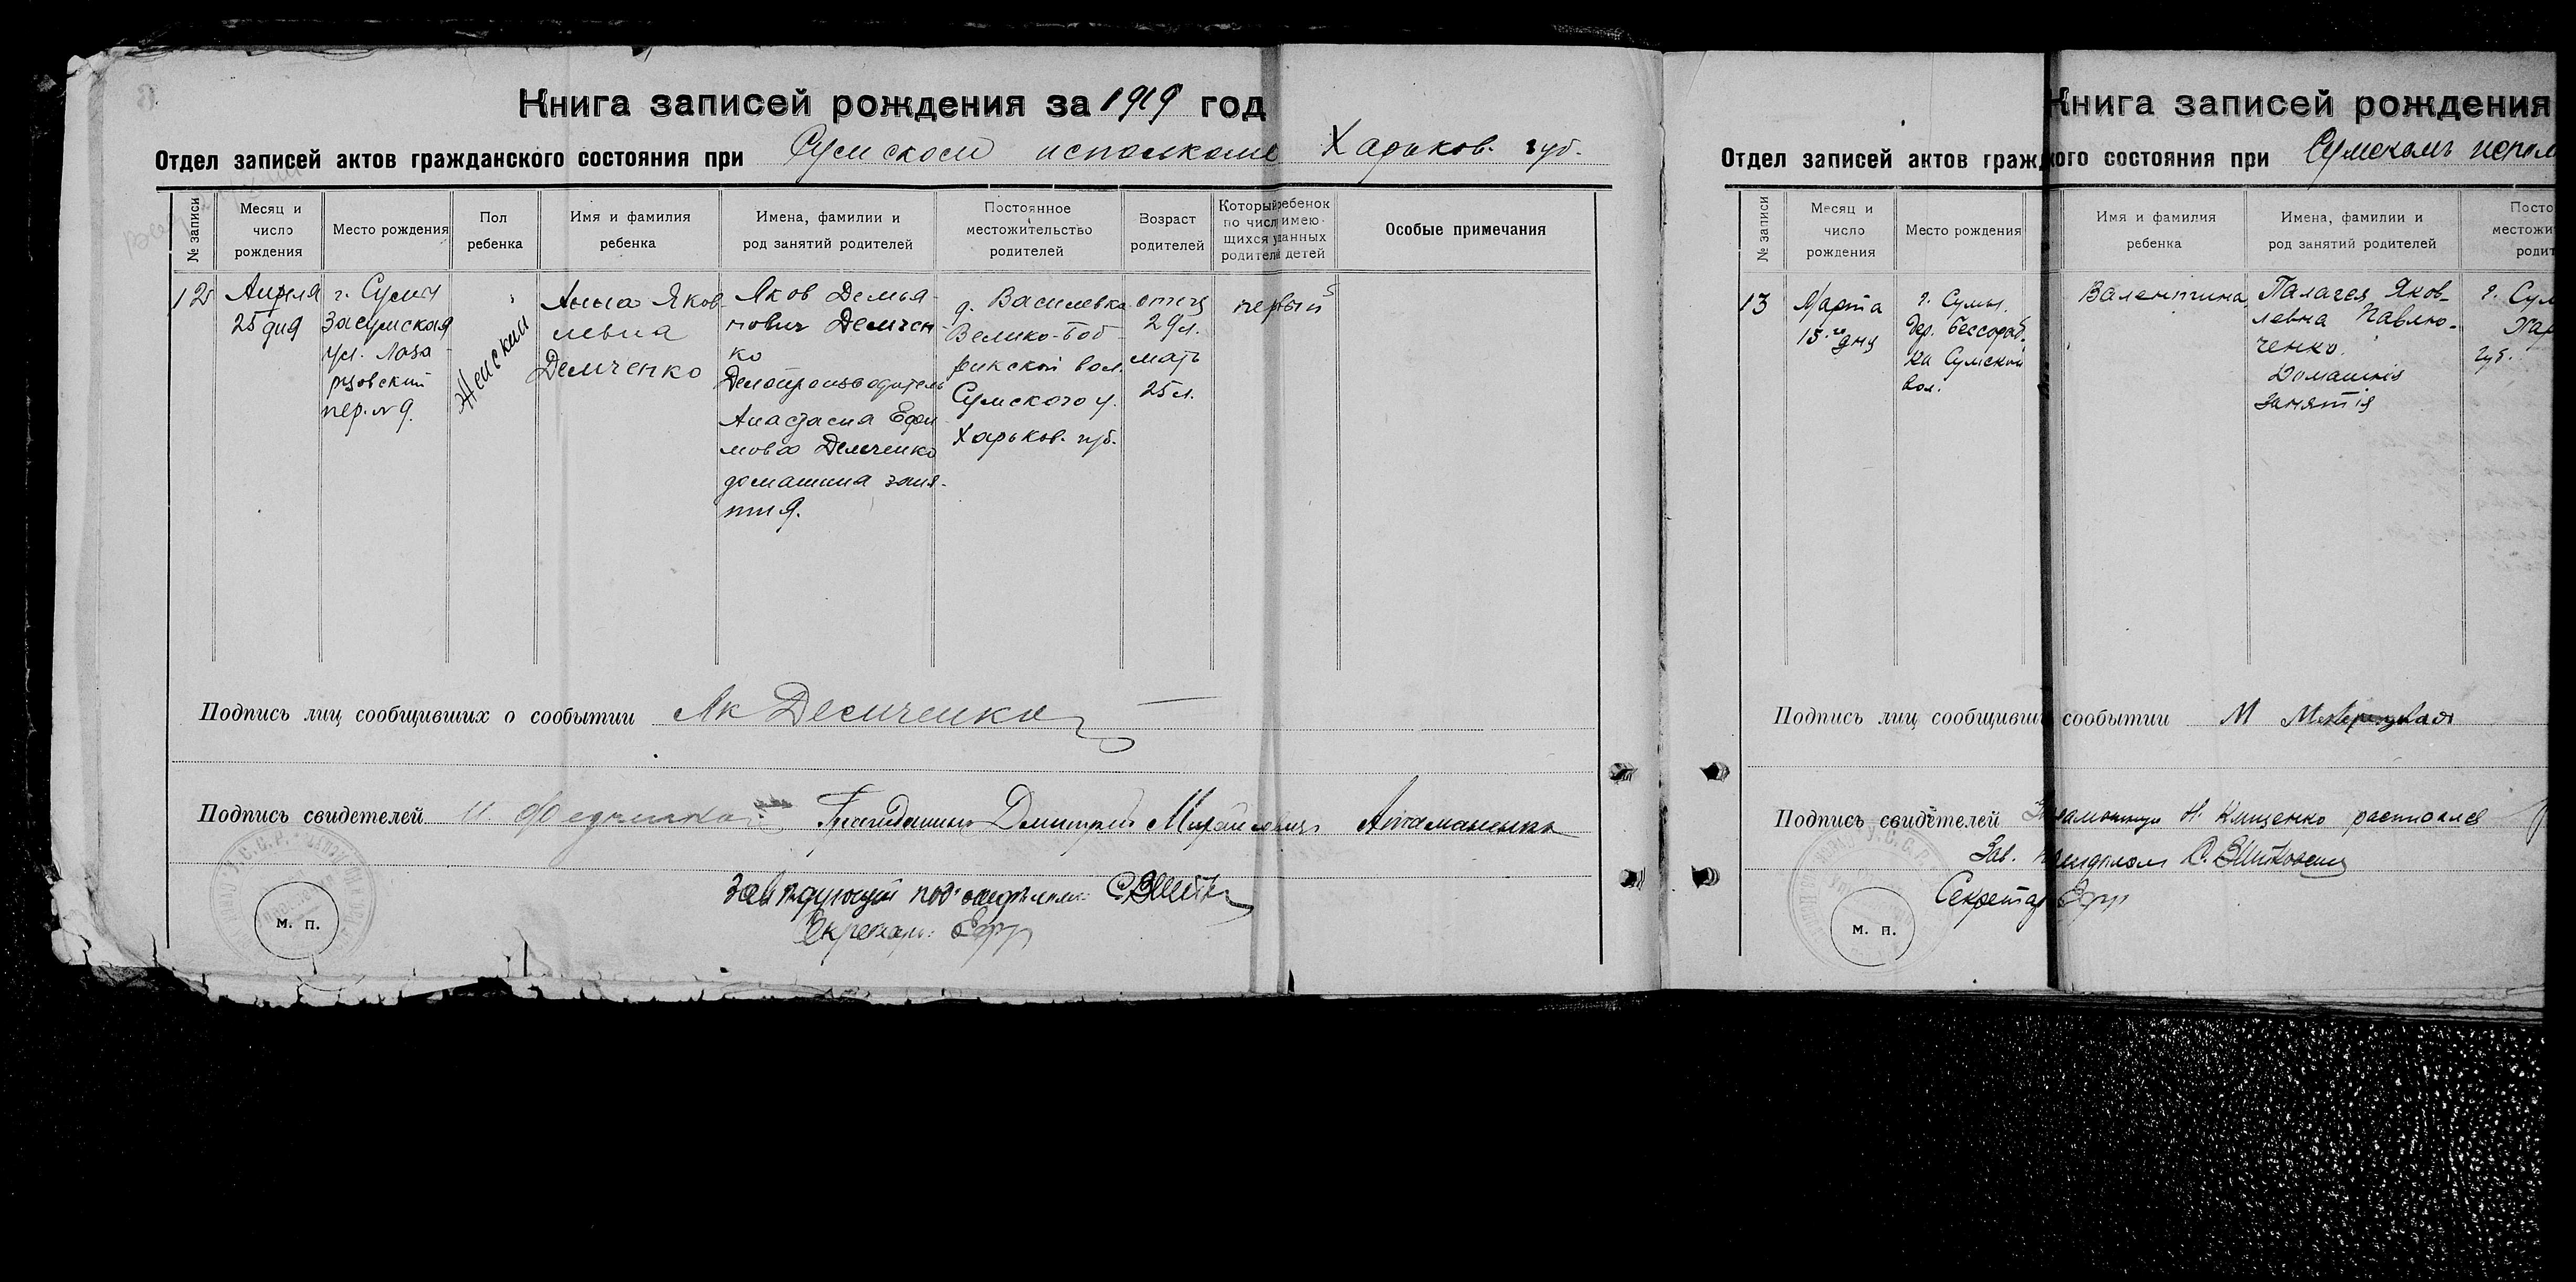 Книга записей рождения за 1919 год
Отдел записей актов гражданского состояния при Сумском исполкоме Харьков. губ.
№ записи
Месяц и
число
рождения
Место рождения
Пол
ребенка
Имя и фамилия
ребенка
Имена, фамилии и
род занятий родителей
Постоянное
местожительство
родителей
Возраст
родителей
Который ребенок
по числ имею-
щихся у данных
родителей детей
Особые примечания
12
Апреля
25 дня
г. Сумы
Засумская
ул. Лаза-
рковский
пер. № 9.
Женский
Анна Яков-
левна
Демченко
Яков Демья-
нович Демчен-
ко
Делопроизводитель
Анастасия Ефи-
мовна Демченко
домашния заня-
тия.
д. Василевка
Велико-Боб-
рикской вол.
Сумского у.
Харьков. губ.
отец
29 л.
мать
25 л.
первый
Подпись лиц сообщивших о сообытии Як Демченко
Подпись свидетелей И. Федченко Гражданин Дмитрий Михайлович Атаманенко
Заведующий под'отделом:
Секретарь:
М. П.
Книга записей рождения
Отдел записей актов гражд кого состояния при Сумскомъ испол
№ записи
Месяц и
число
рождения
Место рождения
Имя и фамилия
ребенка
Имена, фамилии и
род занятий родителей
Посто
местожи
родит
13
Марта
15го дня
г. Сумы.
дер. Бессораб-
ка Сумской
вол.
Валентина
Палагея Яков-
левна Павлю-
ченко.
Домашнія
занятія
г. Сум
Хар
губ.
Подпись лиц сообщивши сообытии М
Подпись свидетелей Н. Клищенко
Зав.
Секретар
М. П.